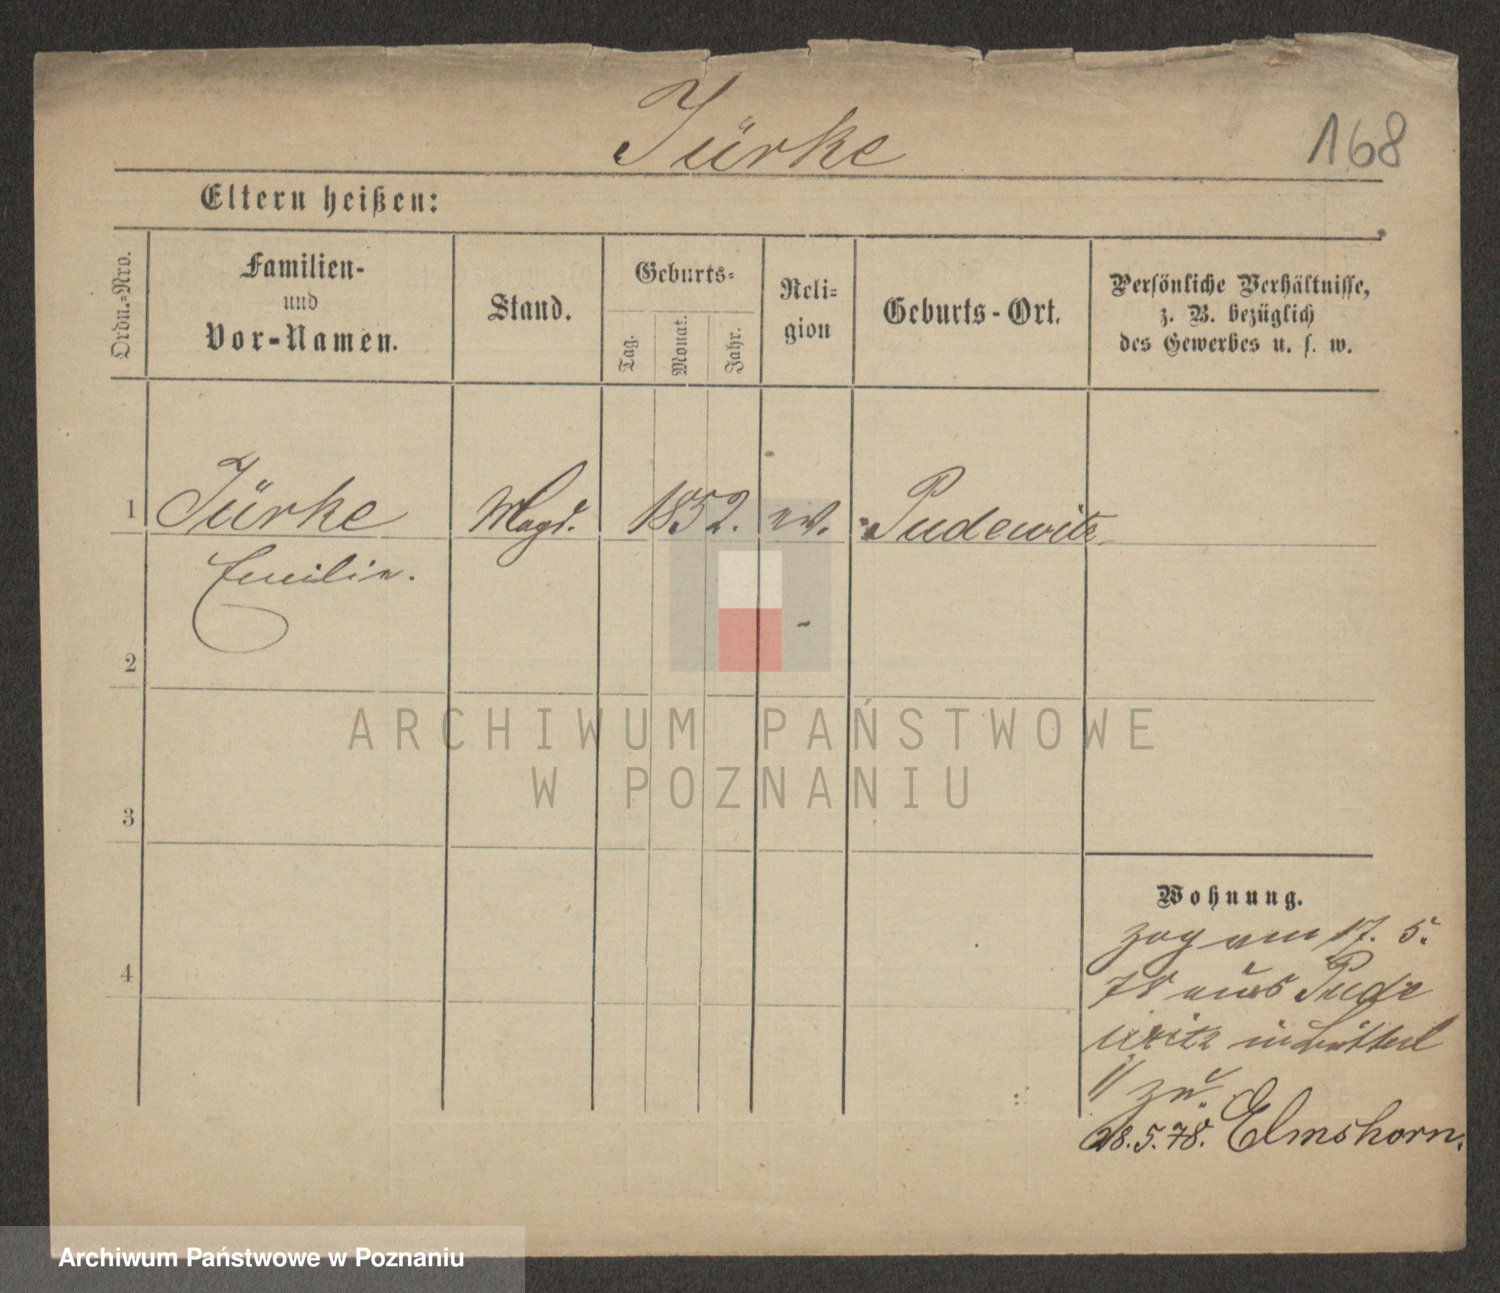 Jürke
168
Eltern heißen:
Ordn.-Nro.
Familien-
und
Vor-Namen.
Stand.
Geburts-
Tag.
Monat.
Jahr.
Reli-
gion
Geburts-Ort.
Persönliche Verhältnisse,
z. B. bezüglich
des Gewerbes u. s. w.
1
Jürke
Magd.
1852.
ev.
Pudewitz
Emilie.
2
3
4
Wohnung.
zog am 17. 5.
78 aus Pude
witz in
zu.
28.5.78. Elmshorn.
ARCHIWUM PAŃSTWOWE
W POZNANIU
Archiwum Państwowe w Poznaniu